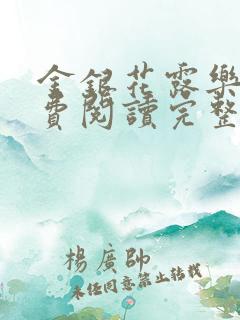 金銀花露樂
費閱讀完整
楊廣帥
未經同意禁止轉載